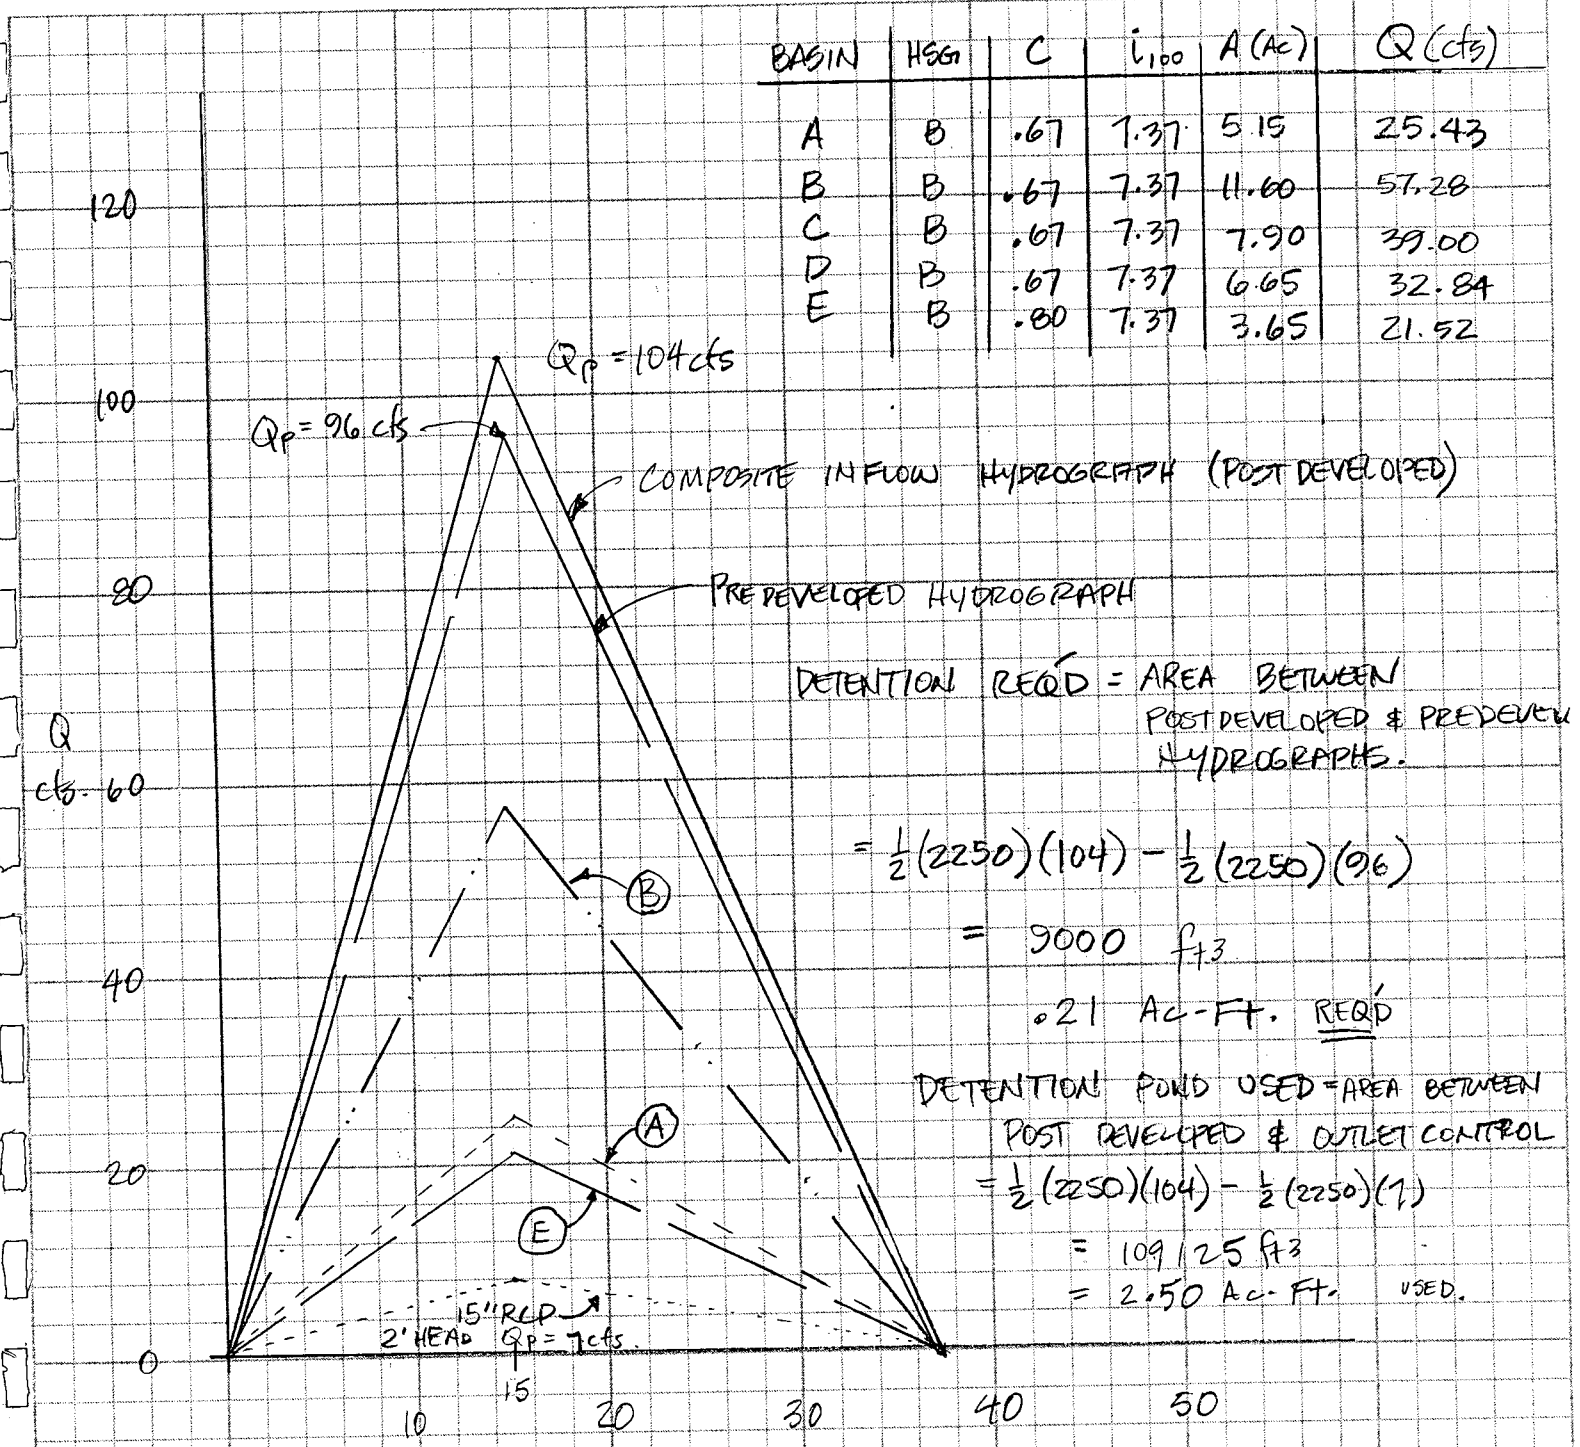 BASIN HSG C i100 A (Ac) Q (cfs)
A B .67 7.37 5.15 25.43
B B .67 7.37 11.60 57.28
C B .67 7.37 7.90 39.00
D B .67 7.37 6.65 32.84
E B .80 7.37 3.65 21.52
120
Qp = 104 cfs
100
Qp = 96 cfs
COMPOSITE INFLOW HYDROGRAPH (POST DEVELOPED)
80
PREDEVELOPED HYDROGRAPH
DETENTION REQ'D = AREA BETWEEN
POSTDEVELOPED & PREDEVEL
HYDROGRAPHS.
Q
cfs. 60
= 1/2 (2250)(104) - 1/2 (2250)(96)
B
= 9000 ft3
40
.21 Ac-Ft. REQ'D
DETENTION POND USED = AREA BETWEEN
A
POST DEVELOPED & OUTLET CONTROL
20
= 1/2 (2250)(104) - 1/2 (2250)(7)
E
= 109125 ft3
= 2.50 Ac-Ft. USED.
15" RCP
2' HEAD Qp = 7 cfs.
0
15
10 20 30 40 50